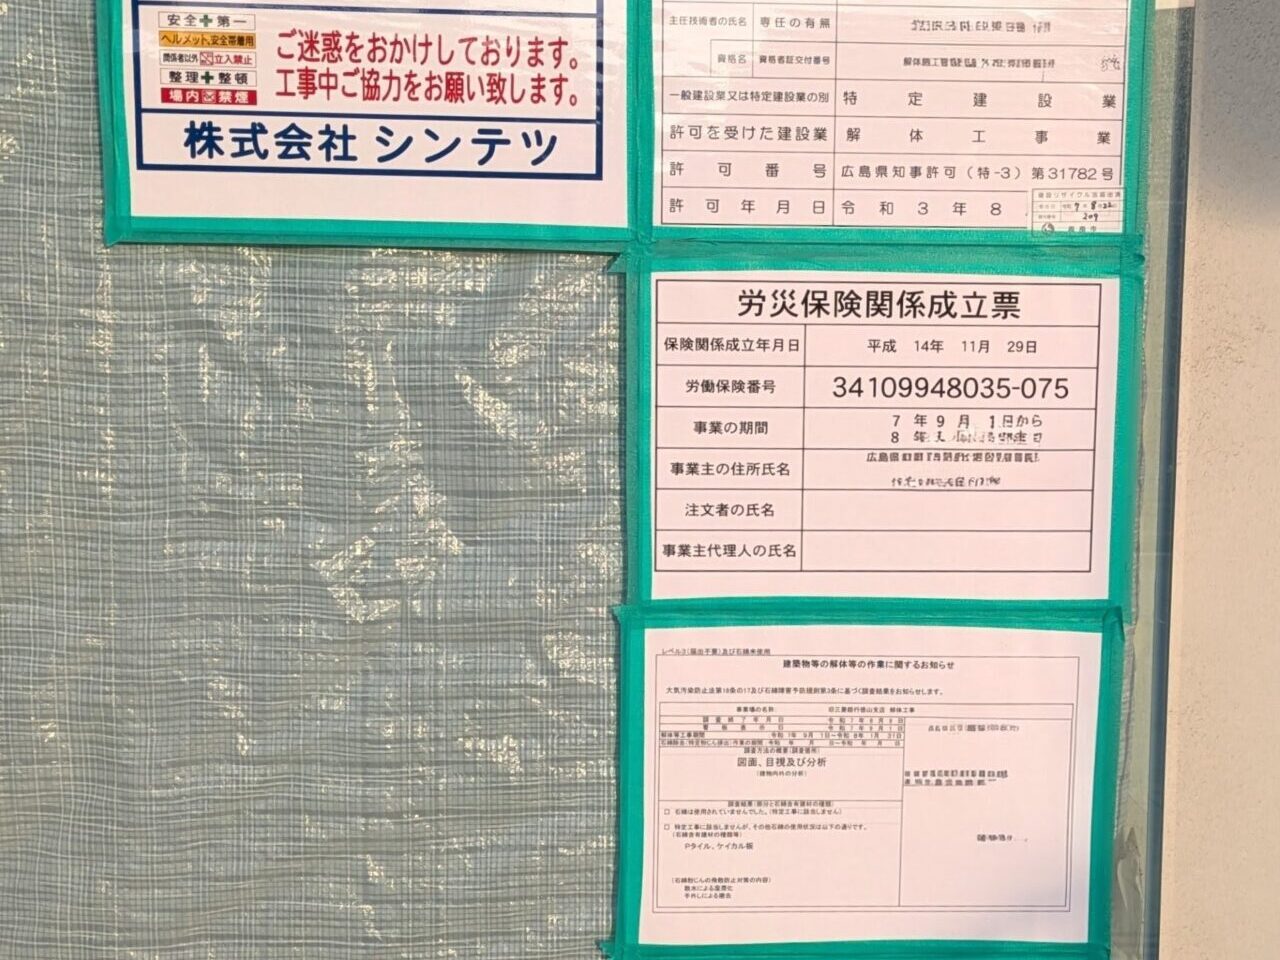 安全✚第一
ヘルメット、安全帯着用
関係者以外 立入禁止
整理✚整頓
場内 禁煙
ご迷惑をおかけしております。
工事中ご協力をお願い致します。
株式会社 シンテツ
主任技術者の氏名 専任の有無
資格名 資格者証交付番号
一般建設業又は特定建設業の別 特定建設業
許可を受けた建設業 解体工事業
許可番号 広島県知事許可(特-3)第31782号
許可年月日 令和3年8
209
労災保険関係成立票
保険関係成立年月日 平成 14年 11月 29日
労働保険番号 34109948035-075
事業の期間 7 年 9 月 1日から
8 年
事業主の住所氏名 広島県
注文者の氏名
事業主代理人の氏名
レベル3(届出不要)及び石綿未使用
建築物等の解体等の作業に関するお知らせ
大気汚染防止法第18条の17及び石綿障害予防規則第3条に基づく調査結果をお知らせします。
事業場の名称: 旧三菱銀行徳山支店 解体工事
調査終了年月日 令和7年8月8日
看板表示日 令和7年9月1日
解体等工事期間 令和 7年 9月 1日~令和 8年 1月 31日
石綿除去(特定粉じん排出)作業の期間 令和 年 月 日~令和 年 月 日
調査方法の概要(調査箇所)
図面、目視及び分析
(建物内外の分析)
調査結果(部分と石綿含有建材の種類)
□ 石綿は使用されていませんでした。(特定工事に該当しません)
□ 特定工事に該当しませんが、その他石綿の使用状況は以下の通りです。
(石綿含有建材の種類等)
Pタイル、ケイカル板
(石綿粉じんの飛散防止対策の内容)
散水による湿潤化
手外しによる撤去